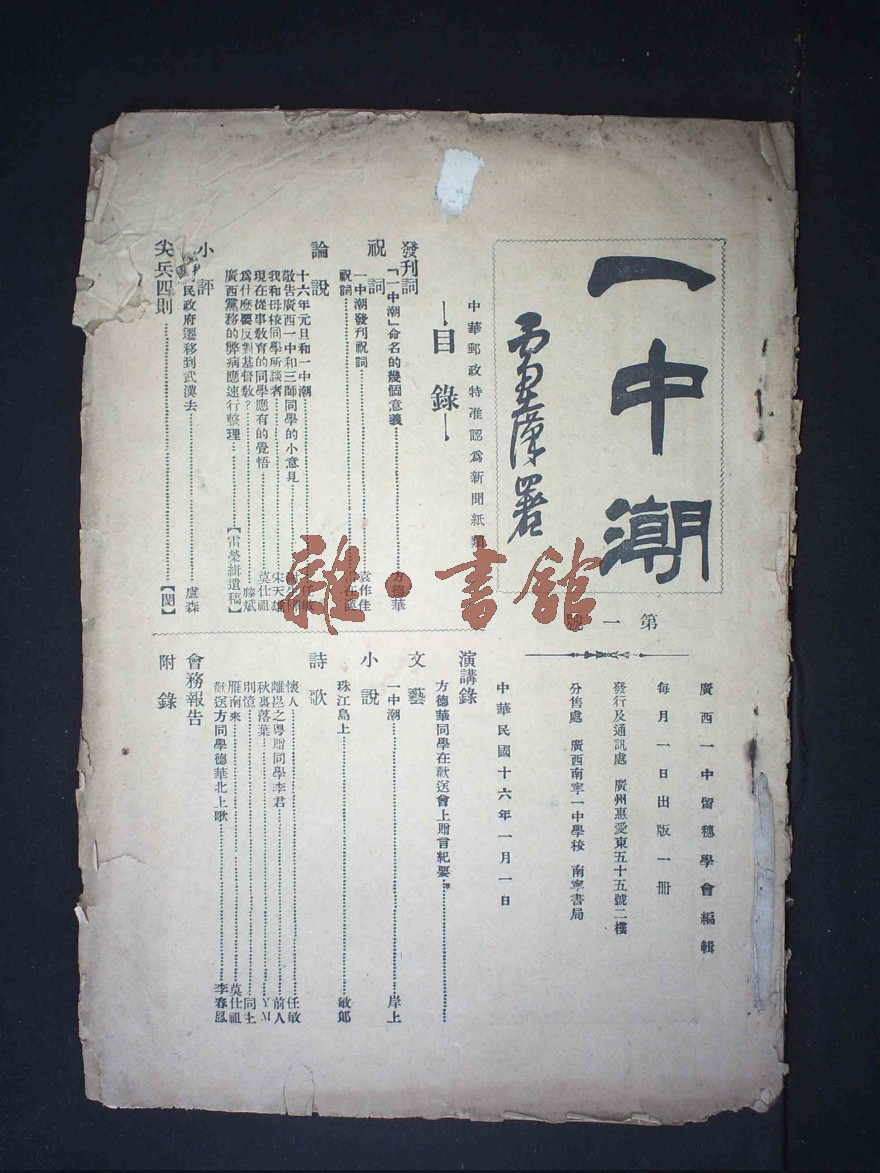 一中潮
署
第一號
中華郵政特准認為新聞紙類
目錄
發刊詞
「一中潮」命名的幾個意義 方德華
祝詞
一中潮發刊祝詞 袁作佳
祝詞
論說
十六年元旦和一中潮 任敏
敬告廣西一中和三師同學的小意見
我和母校同學所談者 宋天雄
現在從事敎育的同學應有的覺悟 莫仕祖
為什麽要反對基督敎? 滕斌
廣西黨務的弊病應速行整理 【雷榮緝遺稿】
小評
民政府遷移到武漢去 盧森
尖兵四則 【閔】
廣西一中留穗學會編輯
每月一日出版一册
發行及通訊處 廣州惠愛東五十五號二樓
分售處 廣西南寧一中學校 南寧書局
中華民國十六年一月一日
演講錄
方德華同學在歡送會上贈言紀要
文藝
一中潮 岸上
小說
珠江島上 敏郎
詩歌
懷人 任敏
離邕之粤贈同學李君 前人
秋裏落葉 Y.M
別憶 同主
雁南來 莫仕祖
歡送方同學德華北上歌 李春鳳
會務報告
附錄
雜·書館